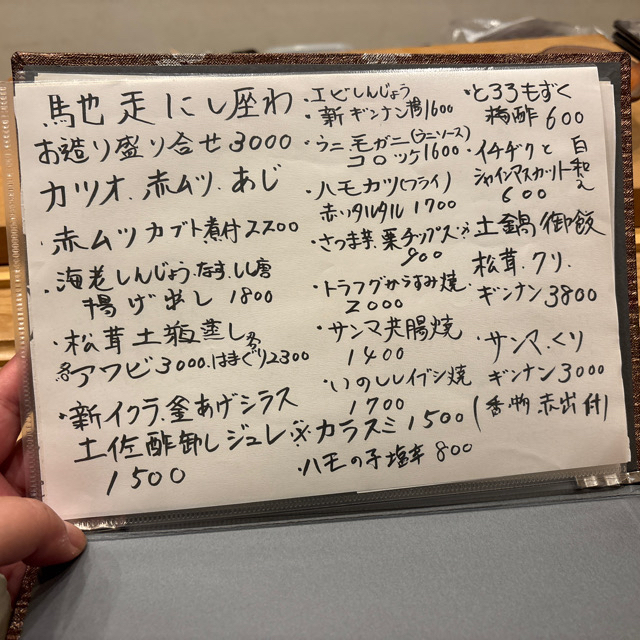 馳走にし座わ
お造り盛り合せ3000
カツオ.赤ムツ.あじ
・赤ムツカブト煮付2200
・海老しんじょう.なす.しし唐
揚げ出し 1800
・松茸土瓶蒸し
アワビ3000.はまぐり2300
・新イクラ.釜あげシラス
土佐酢卸しジュレ
1500
・エビしんじょう
・新ギンナン 1600
・ウニ 毛ガニ(ウニソース)
コロッケ1600
・ハモカツ(フライ)
赤いタルタル 1700
・さつま芋.栗チップス
900
・トラフグからすみ焼
2000
・サンマ共腸焼
1400
・いのししイブシ焼
1700
※カラスミ1500
・ハモの子塩辛 800
・とろろもずく
梅酢 600
・イチヂクと 白和え
シャインマスカット
600
土鍋御飯
松茸.クリ.
ギンナン3800
・サンマ.くり
ギンナン3000
(香物 赤出付)